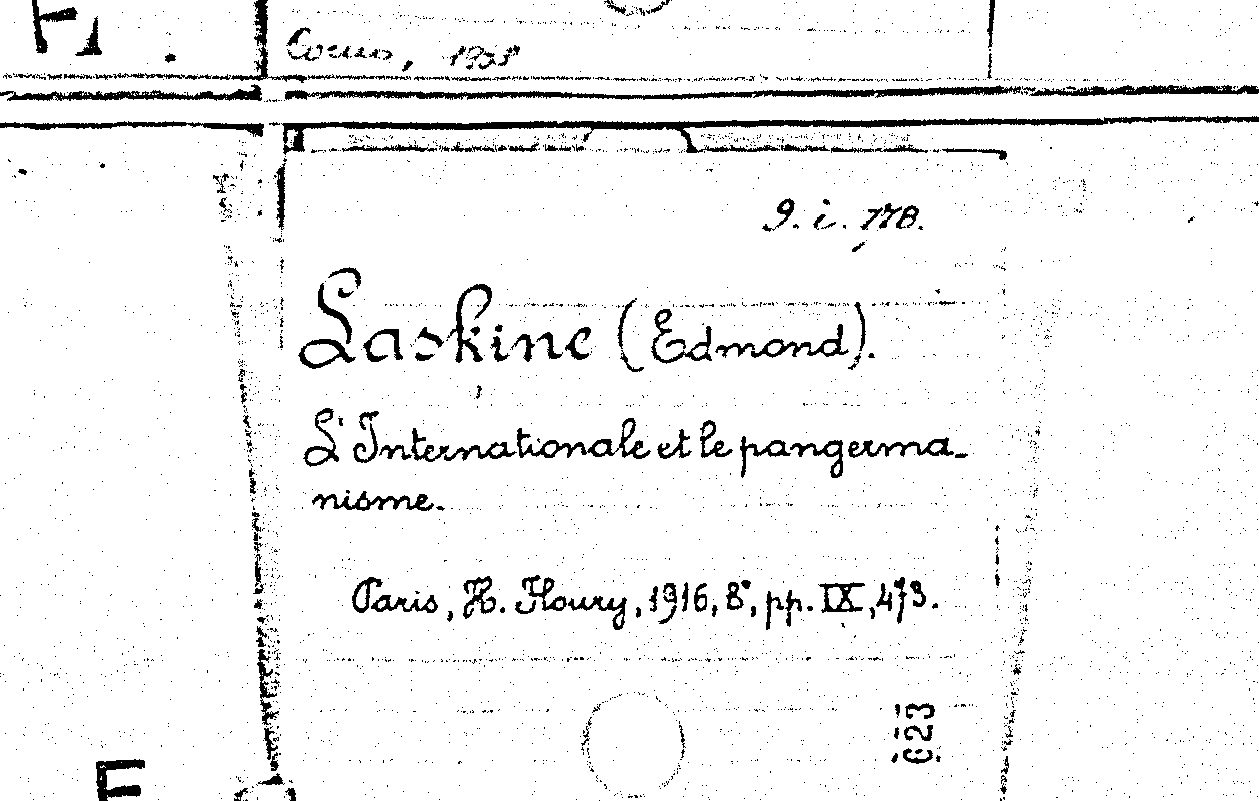 9. i. 778.
Laskine (Edmond).
L'Internationale et le pangerma-
nisme.
Paris, H. Floury, 1916, 8°, pp. IX, 473.
623
E